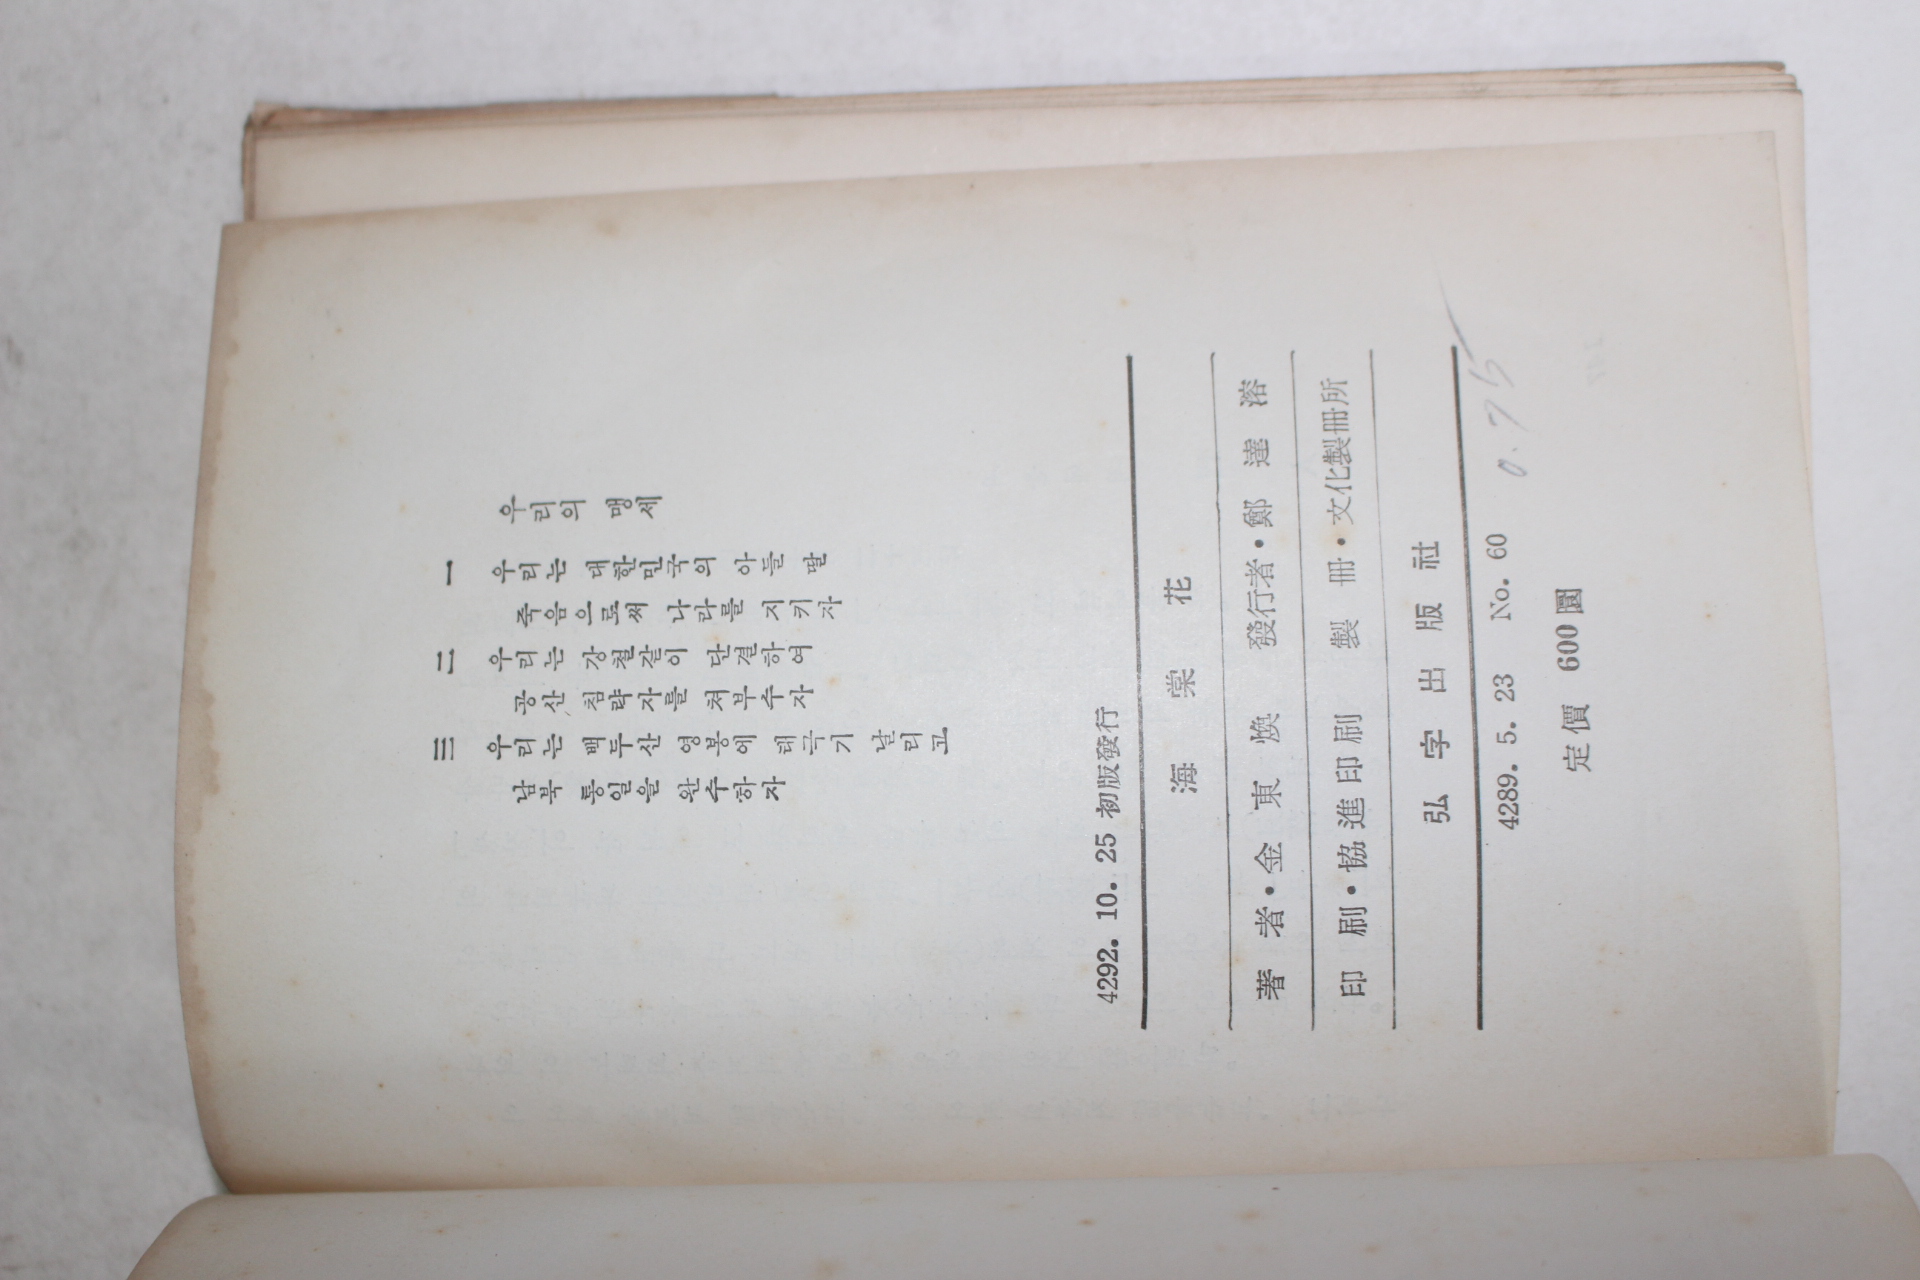 우리의 맹세
一 우리는 대한민국의 아들 딸
죽음으로써 나라를 지키자
二 우리는 강철같이 단결하여
공산 침략자를 쳐부수자
三 우리는 백두산 영봉에 태극기 날리고
남북 통일을 완수하자
4292. 10. 25 初版發行
海棠花
著者・金東煥 發行者・鄭達溶
印刷・協進印刷 製冊・文化製冊所
弘字出版社
4289. 5. 23 No. 60
定價 600圜
0.75